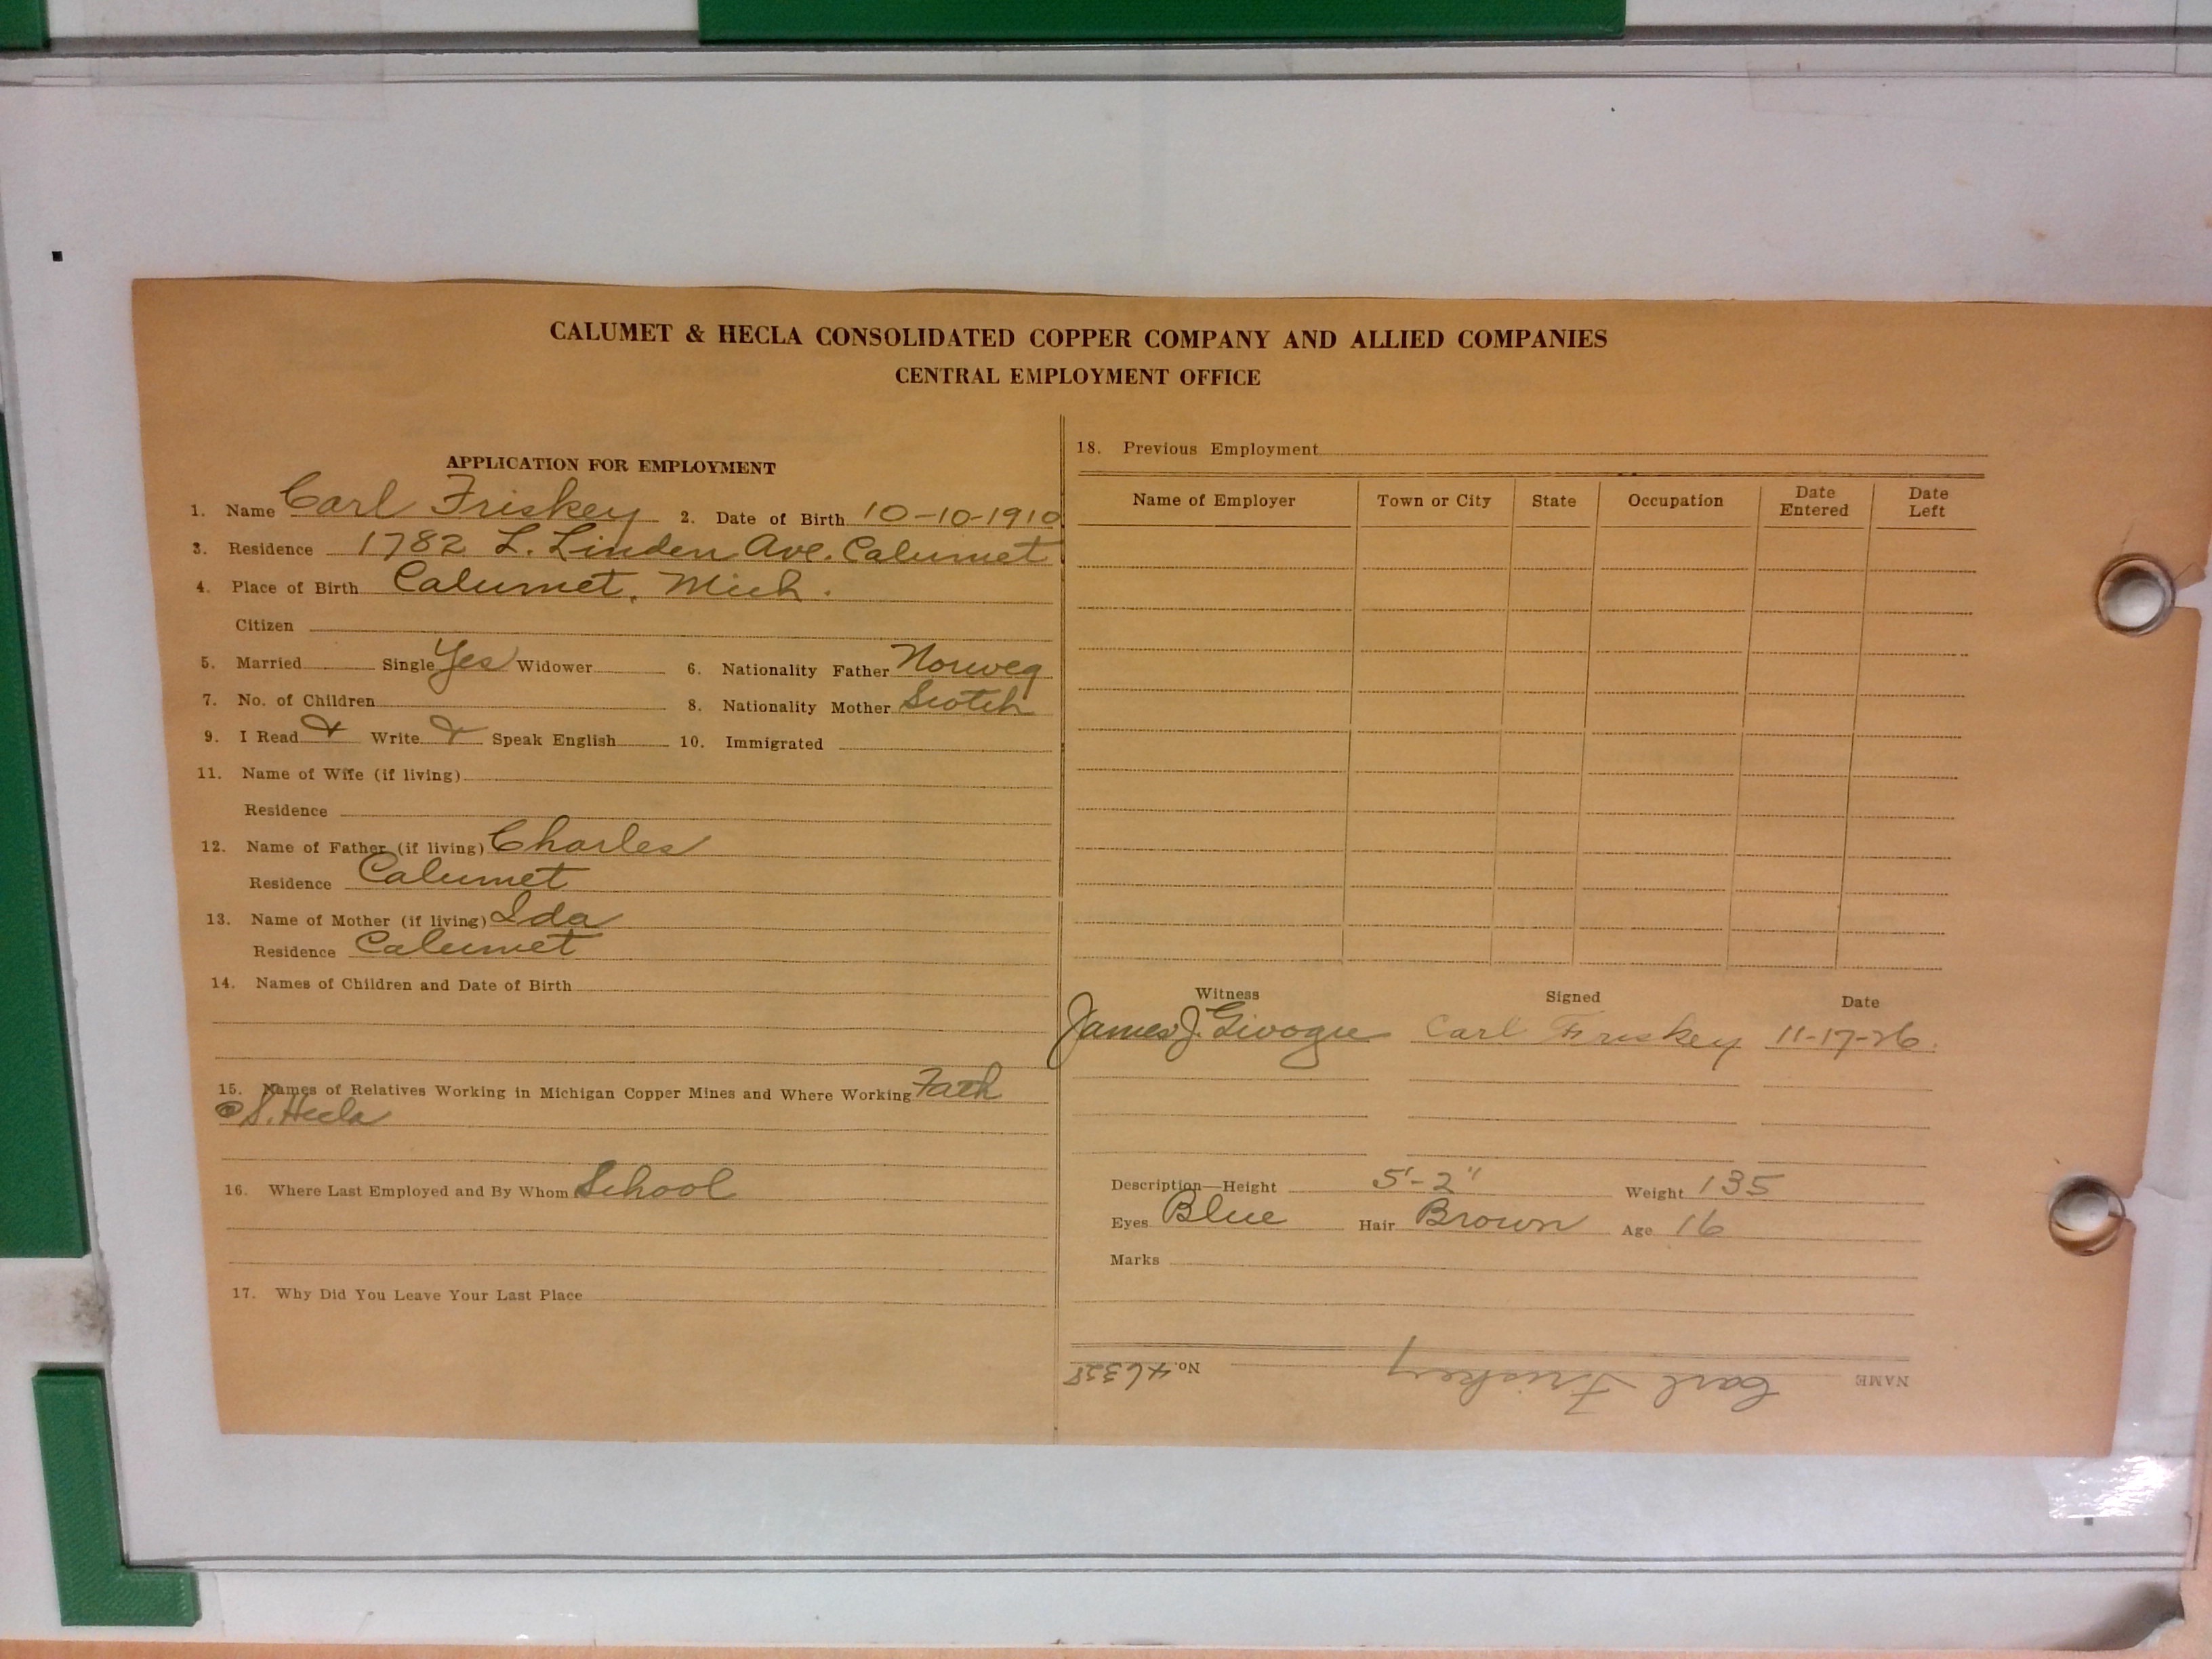 CALUMET & HECLA CONSOLIDATED COPPER COMPANY AND ALLIED COMPANIES
CENTRAL EMPLOYMENT OFFICE
APPLICATION FOR EMPLOYMENT
1. Name Carl Friskey 2. Date of Birth 10-10-1910
3. Residence 1782 L. Linden Ave. Calumet
4. Place of Birth Calumet, Mich.
Citizen
5. Married Single Yes Widower 6. Nationality Father Norweg
7. No. of Children 8. Nationality Mother Scotch
9. I Read & Write & Speak English 10. Immigrated
11. Name of Wife (if living)
Residence
12. Name of Father (if living) Charles
Residence Calumet
13. Name of Mother (if living) Ida
Residence Calumet
14. Names of Children and Date of Birth
15. Names of Relatives Working in Michigan Copper Mines and Where Working Fath
@ S. Hecla
16. Where Last Employed and By Whom School
17. Why Did You Leave Your Last Place
18. Previous Employment
Name of Employer Town or City State Occupation Date Entered Date Left
Witness Signed Date
James J. Carl Friskey 11-17-26.
Description—Height 5'-2" Weight 135
Eyes Blue Hair Brown Age 16
Marks
NAME Carl Friskey No. 46328